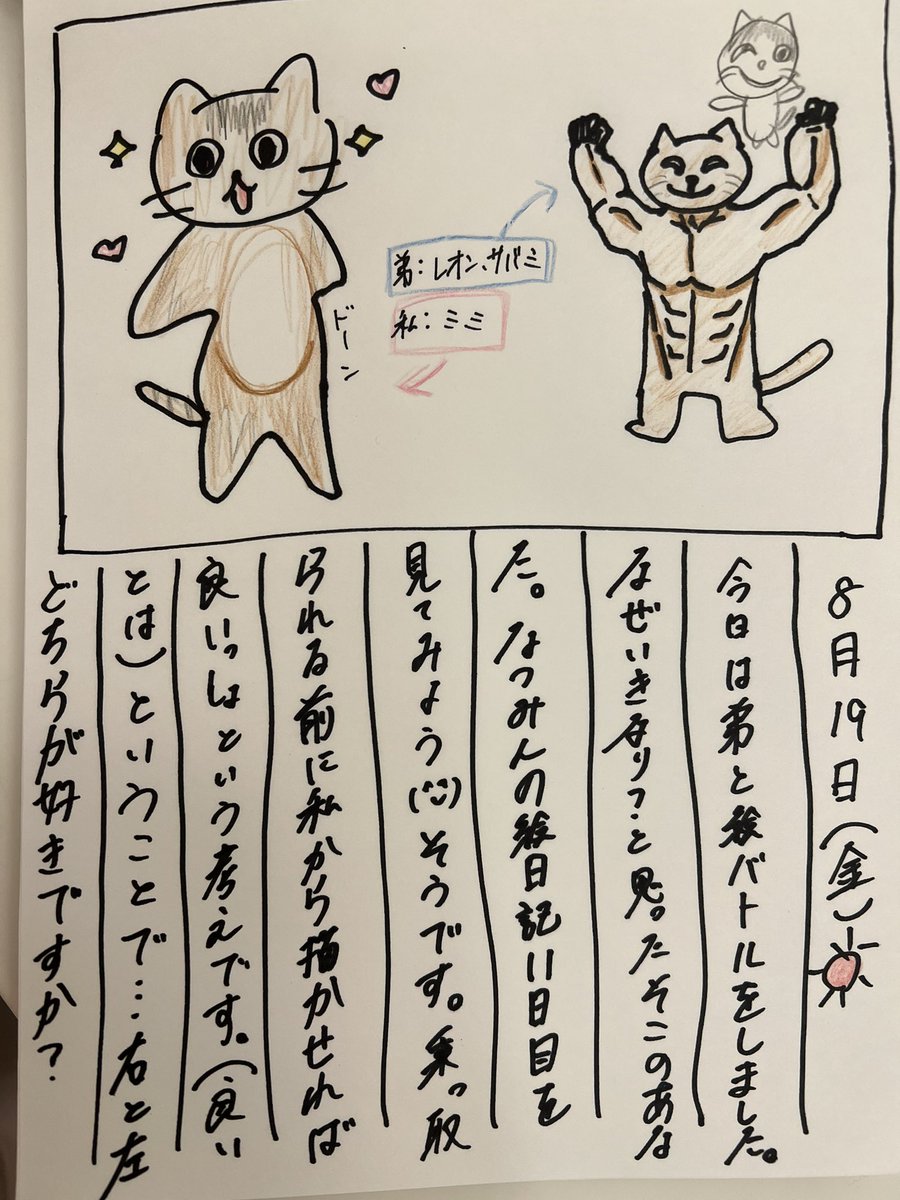 弟:レオン、サバミ
私:ミミ
ドーン
8月19日(金)
今日は弟と絵バトルをしました。
なぜいきなり?と思ったそこのあな
た。なつみんの絵日記11日目を
見てみよう(¨̮)そうです。乗っ取
られる前に私から描かせれば
良いっしょという考えです。(良い
とは)ということで…右と左
どちらが好きですか?